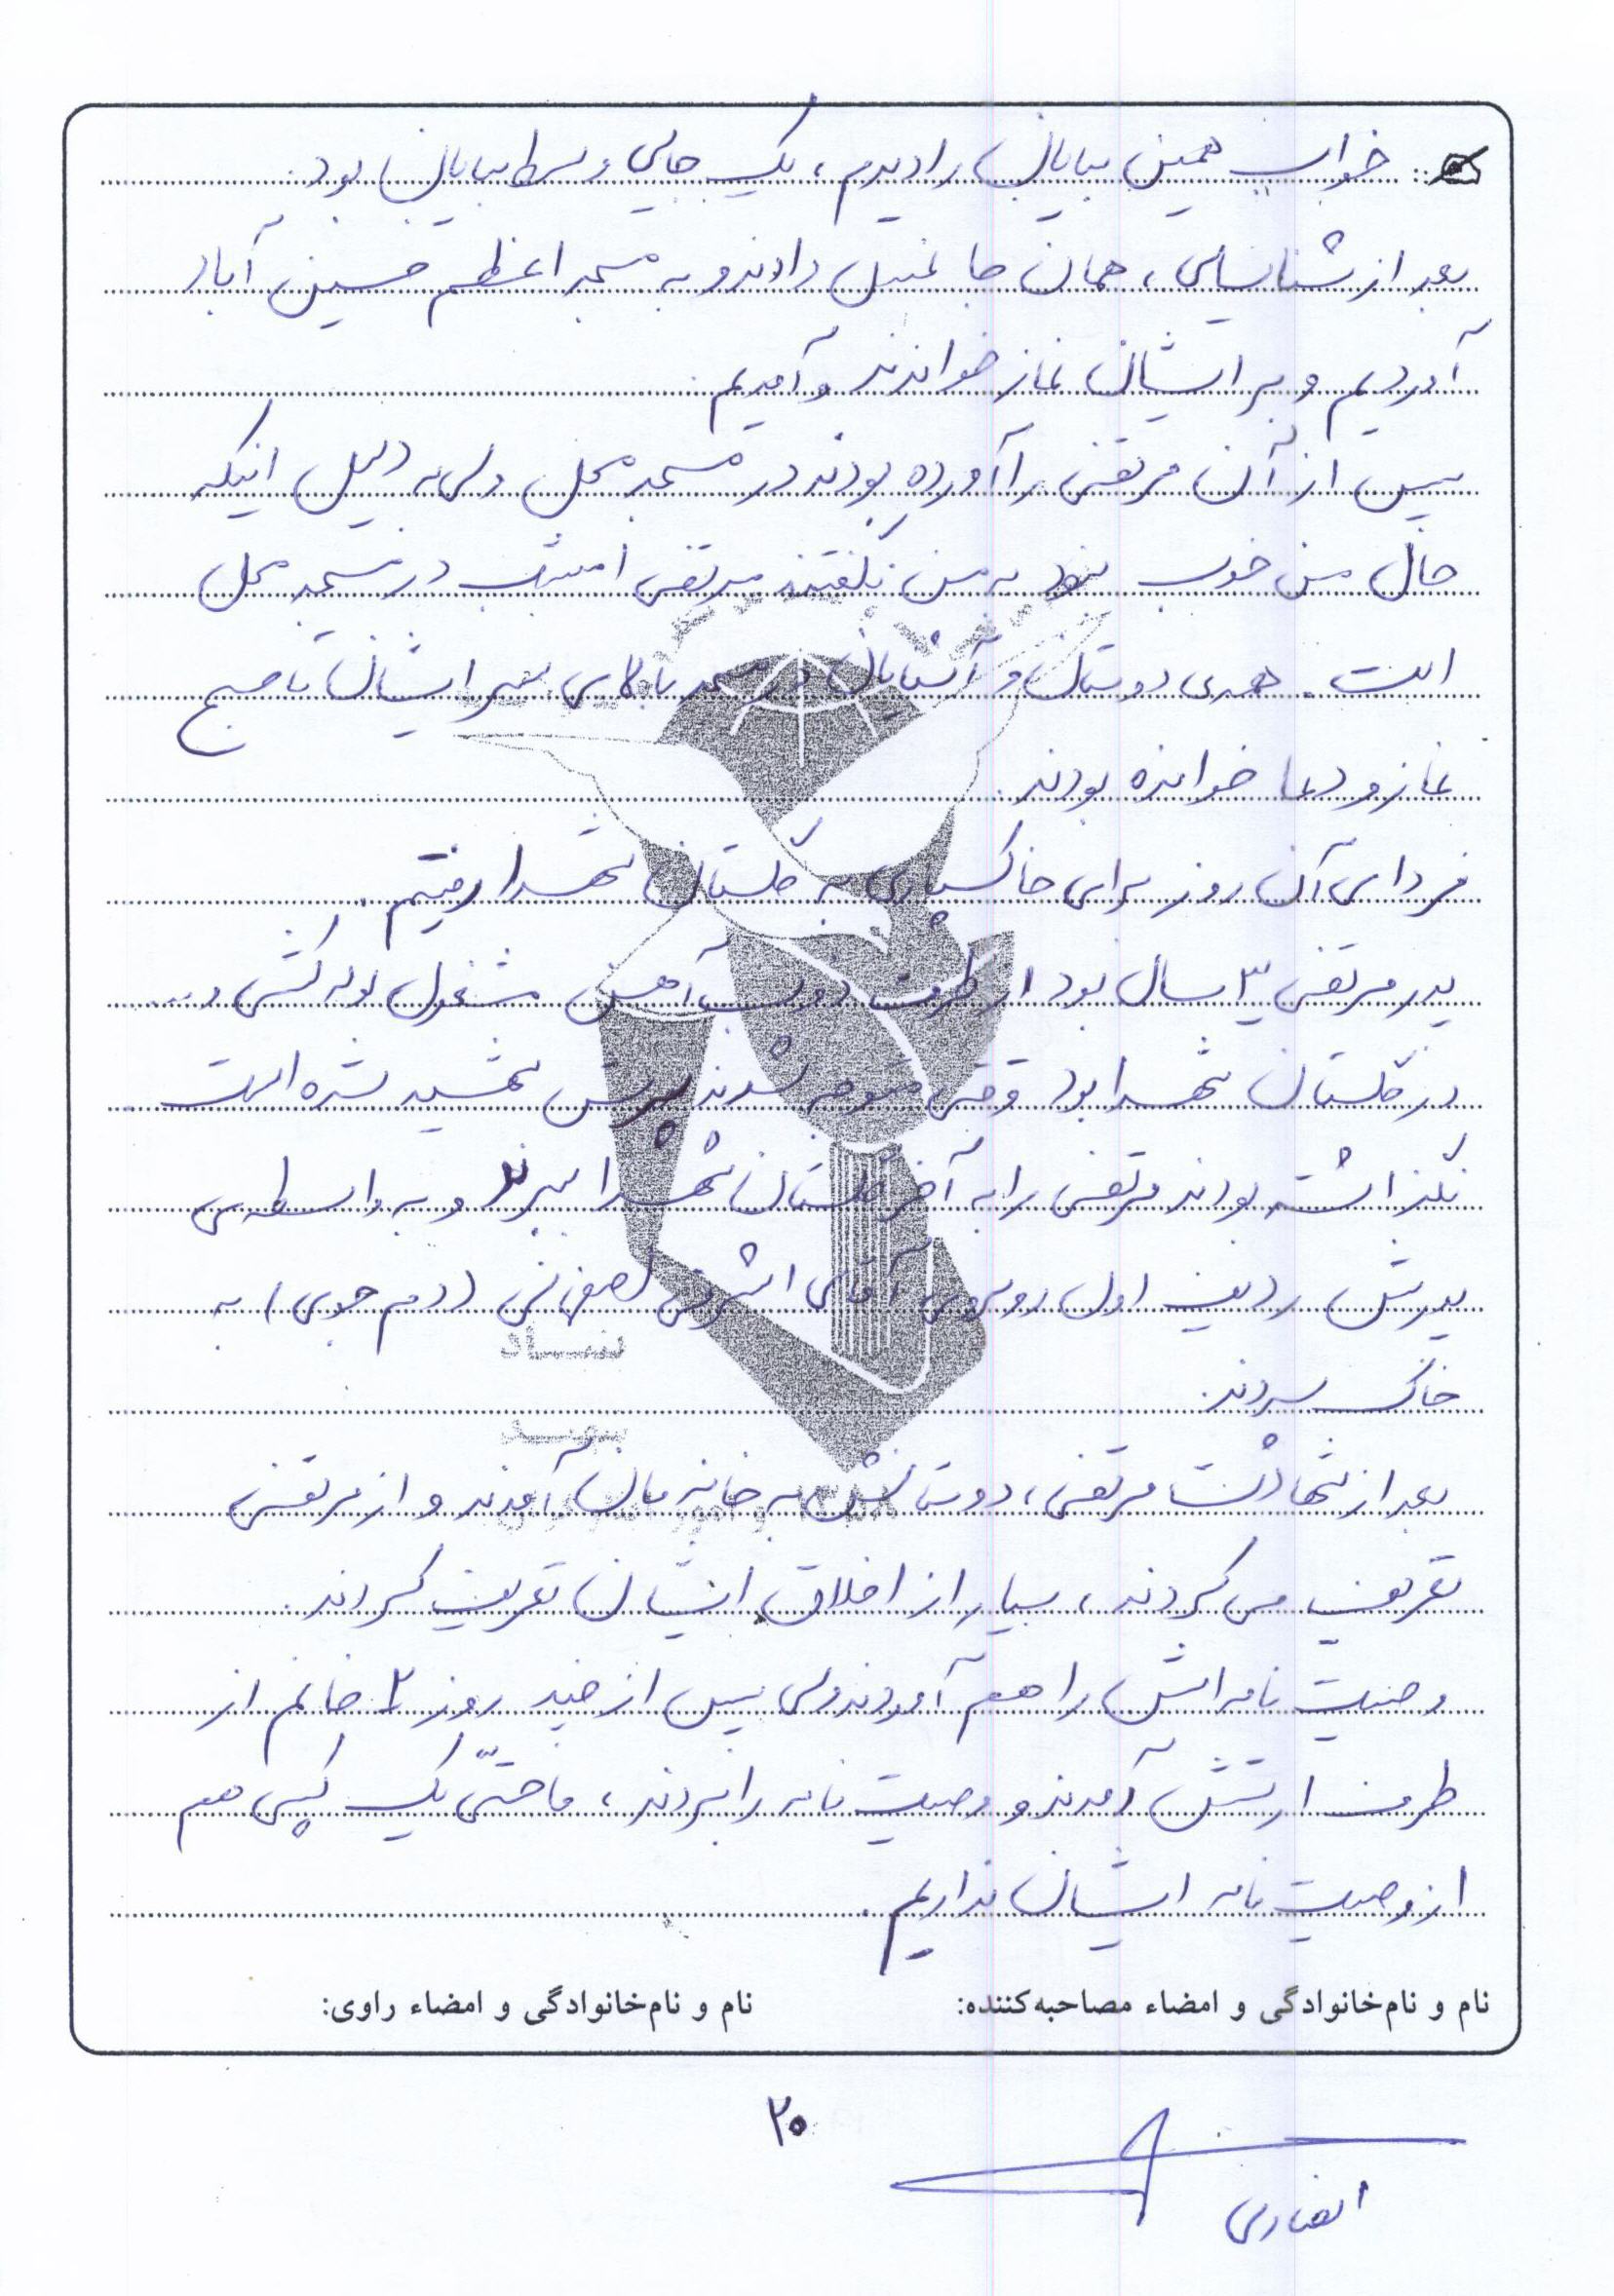 خواب همین بیابان را دیدم، یک جایی وسط بیابان بود.
بعد از شناسایی، همان جا غسل دادند و به مسجد اعظم حسین آباد
آوردیم و بر ایشان نماز خواندند و آمدیم.
پس از آن مرتضی را آورده بودند در مسجد محل ولی به دلیل اینکه
حال من خوب نبود به من نگفتند مرتضی امشب در مسجد محل
است. همه‌ی دوستان و آشنایان در مسجد بالای سر ایشان تا صبح
نماز و دعا خوانده بودند.
فردای آن روز برای خاکسپاری به گلستان شهدا رفتیم.
پدر مرتضی ۳ سال بود از طرف ذوب آهن مشغول لوله کشی و...
در گلستان شهدا بود وقتی متوجه شدند پسرش شهید شده است
نگذاشته بودند مرتضی را به آخر گلستان شهدا ببرند و به واسطه‌ی
پدرش ردیف اول روبروی آقای اشرفی اصفهانی (دم جوی) به
خاک سپردند.
بعد از شهادت مرتضی، دوستانش به خانه مان آمدند و از مرتضی
تعریف می کردند، بسیار از اخلاق ایشان تعریف کردند.
وصیت نامه اش را هم آوردند ولی پس از چند روز ۲ خانم از
طرف ارتش آمدند و وصیت نامه را بردند، ما حتّی یک کپی هم
از وصیت نامه ایشان نداریم.
نام و نام‌خانوادگی و امضاء مصاحبه‌کننده: نام و نام‌خانوادگی و امضاء راوی:
۲۰
انصاری